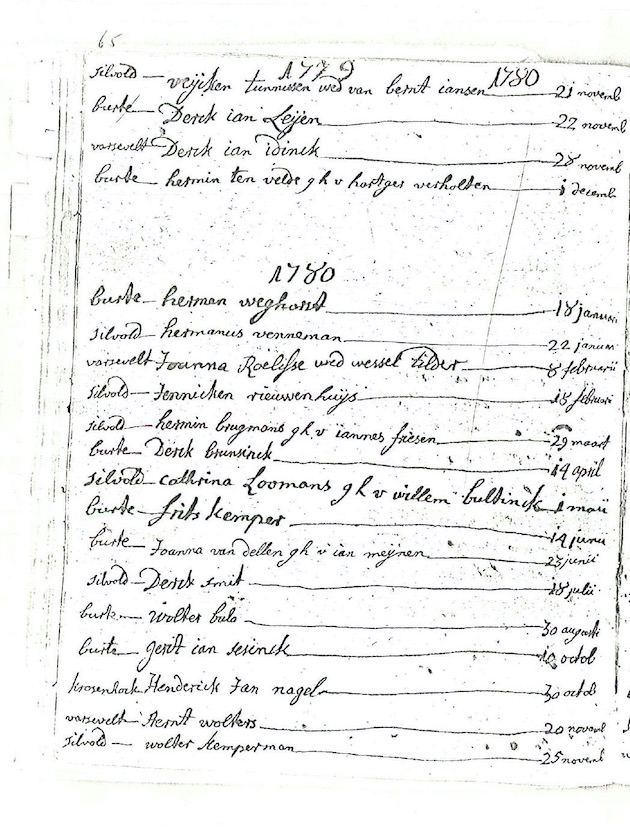 65
1779 1780
silvold — veijken tunnissen wed van bernt iansen — 21 novemb
burte — Derck ian Leijen — 22 novemb
varsevelt Derck ian idinck — 28 novemb
burte — hermin ten velde g h v hartger verholten — 1 decemb
1780
burte — herman weghorst — 18 januari
silvold — hermanus venneman — 22 januari
varsevelt Joanna Roelisse wed wessel tilder — 8 februarii
silvold — Jennicken nieuwenhuijs — 18 februari
silvold — hermin brugmans g h v iannes friesen — 29 maart
burte — Derck brunsinck — 14 april
silvold — cathrina Loomans g h v willem bultinck — 1 maii
burte — frits kemper — 14 junii
burte — Joanna van dellen g h v ian meijnen — 23 junii
silvold — Derck smit — 18 julii
burte — wolter bulo — 30 augusti
burte — gerit ian sesinck — 10 octob
krosenhoek Henderick Jan nagel — 30 octob
varsevelt — Aernt wolters — 20 novemb
silvold — wolter kemperman — 25 novemb